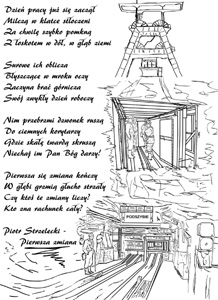 Dzień pracy już się zaczął
Milczą w klatce stłoczeni
Za chwilę szybko pomkną
Z łoskotem w dół, w głąb ziemi
Surowe ich oblicza
Błyszczące w mroku oczy
Zaczyna brać górnicza
Swój zwykły dzień roboczy
Nim przebrzmi dzwonek ruszą
Do ciemnych korytarzy
Gdzie skałę twardą skruszą
Niechaj im Pan Bóg darzy!
Pierwsza się zmiana kończy
W głębi grzmią głucho strzały
Czy ktoś te zmiany liczy?
Kto zna rachunek cały?
PODSZYBIE
Piotr Strzelecki -
Pierwsza zmiana